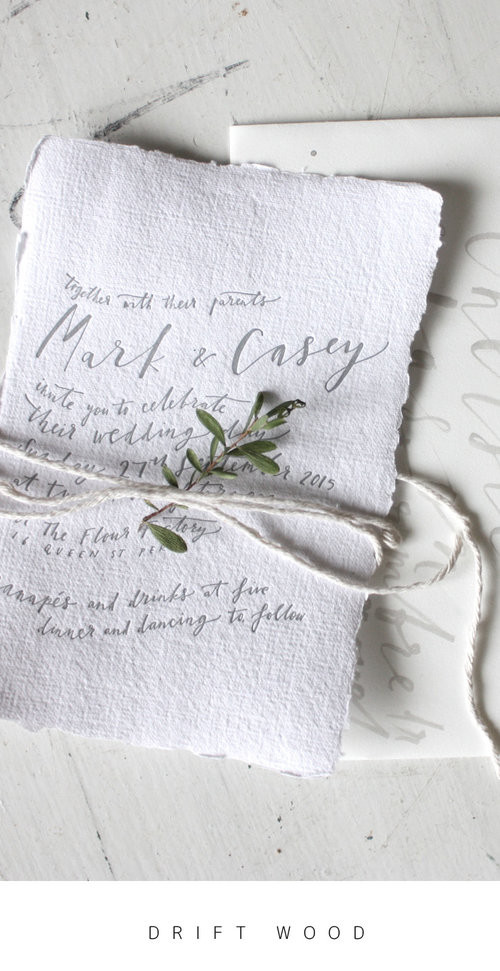 together with their parents
Mark & Casey
invite you to celebrate
their wedding day
Sunday 27th September 2015
at
The Flour Factory
16 QUEEN ST
canapés and drinks at five
dinner and dancing to follow
DRIFT WOOD